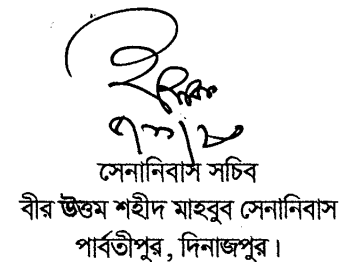 সেনানিবাস সচিব
বীর উত্তম শহীদ মাহবুব সেনানিবাস
পার্বতীপুর, দিনাজপুর।